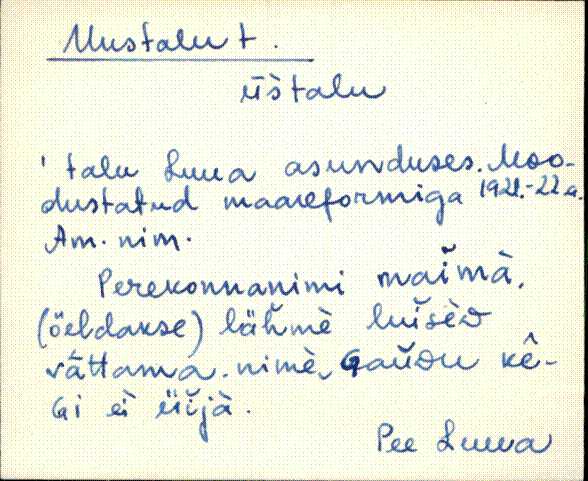 Uustalu t.
üštalu
' talu Luua asunduses. Moo-
dustatud maareformiga 1921.-22 a.
Am. nim.
Perekonnanimi
(öeldakse) lähmè
vättama. nimè, Gaŭdu kê-
Gi ei
Pee Luua